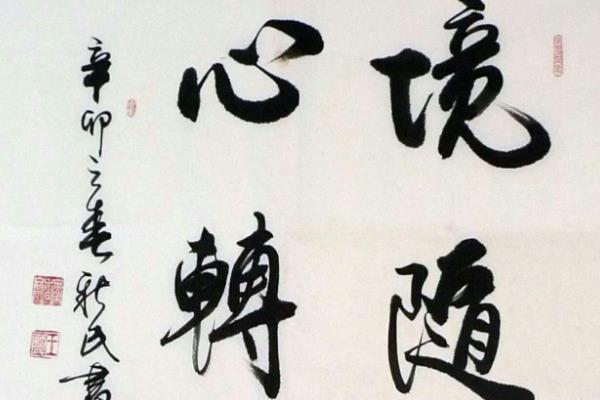 境隨
心轉
辛卯之春新民書